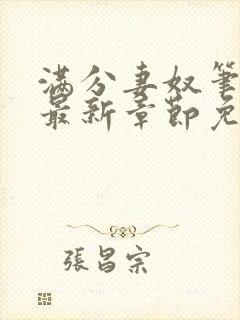 满分妻奴笔
最新章节免
張昌宗